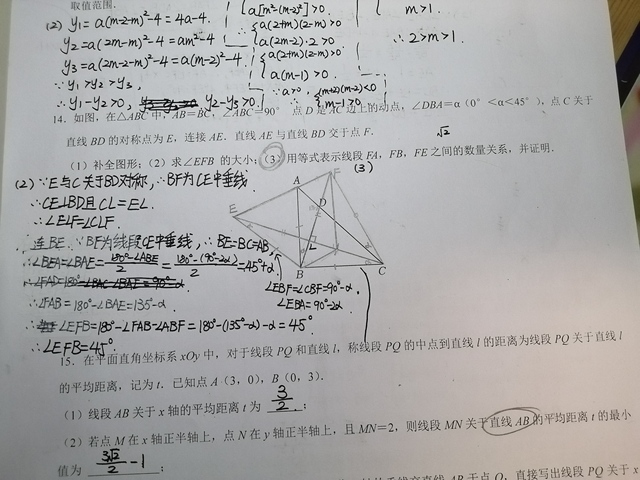 取值范围.
(2) y₁=a(m-2-m)²-4=4a-4.
y₂=a(2m-m)²-4=am²-4
y₃=a(2m-2-m)²-4=a(m-2)²-4.
∵y₁>y₂>y₃,
∴y₁-y₂>0, y₂-y₃>0.
a[m²-(m-2)²]>0.
∴a(2+m)(2-m)>0
a(2m-2)·2>0
a(2+m)(2-m)>0
a(m-1)>0
∵a>0, (m+2)(m-2)<0
∴ m-1>0.
m>1.
∴2>m>1.
14. 如图,在△ABC 中,AB=BC,∠ABC=90° 点 D 是 AC 边上的动点,∠DBA=α(0°<α<45°),点 C 关于
直线 BD 的对称点为 E,连接 AE. 直线 AE 与直线 BD 交于点 F.
√2
(1)补全图形;(2)求∠EFB 的大小;(3)用等式表示线段 FA,FB,FE 之间的数量关系,并证明.
(2) ∵E与C关于BD对称,∴BF为CE中垂线
∴CE⊥BD且CL=EL.
∴∠ELF=∠CLF.
连BE. ∵BF为线段CE中垂线,∴BE=BC=AB,
∴∠BEA=∠BAE=(180°-∠ABE)/2=(180°-(90°-2α))/2=45°+α.
∴∠FAB=180°-∠BAE=135°-α
∴∠EFB=180°-∠FAB-∠ABF=180°-(135°-α)-α=45°
∴∠EFB=45°.
(3)
F
A
D
E
L
B
C
∠EBF=∠CBF=90°-α.
∠EBA=90°-2α.
15. 在平面直角坐标系 xOy 中,对于线段 PQ 和直线 l,称线段 PQ 的中点到直线 l 的距离为线段 PQ 关于直线 l
的平均距离,记为 t. 已知点 A(3,0),B(0,3).
(1)线段 AB 关于 x 轴的平均距离 t 为 3/2 ;
(2)若点 M 在 x 轴正半轴上,点 N 在 y 轴正半轴上,且 MN=2,则线段 MN 关于直线 AB 的平均距离 t 的最小
值为 3√2/2 -1 ;
直线 AB 于点 Q,直接写出线段 PQ 关于 x